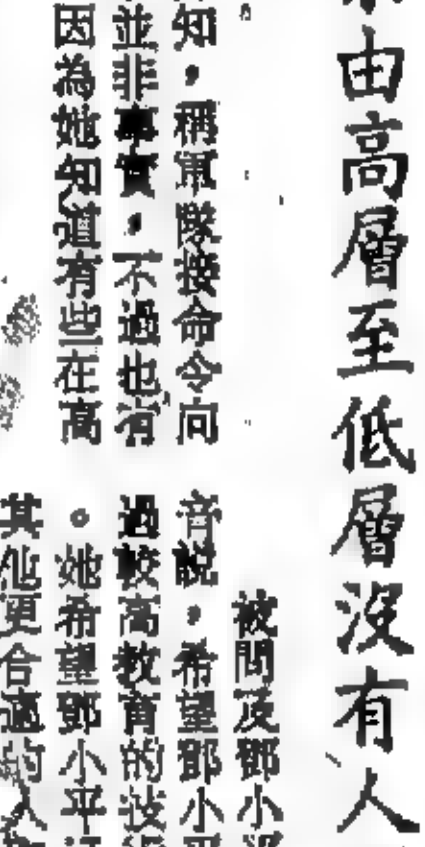 由高層至低層沒有人
知，稱軍隊接命令向
並非事實，不過也有
因為她知道有些在高
被問及鄧小
音說，希望鄧小平
過較高教育的技
。她希望鄧小平
其他更合適的人